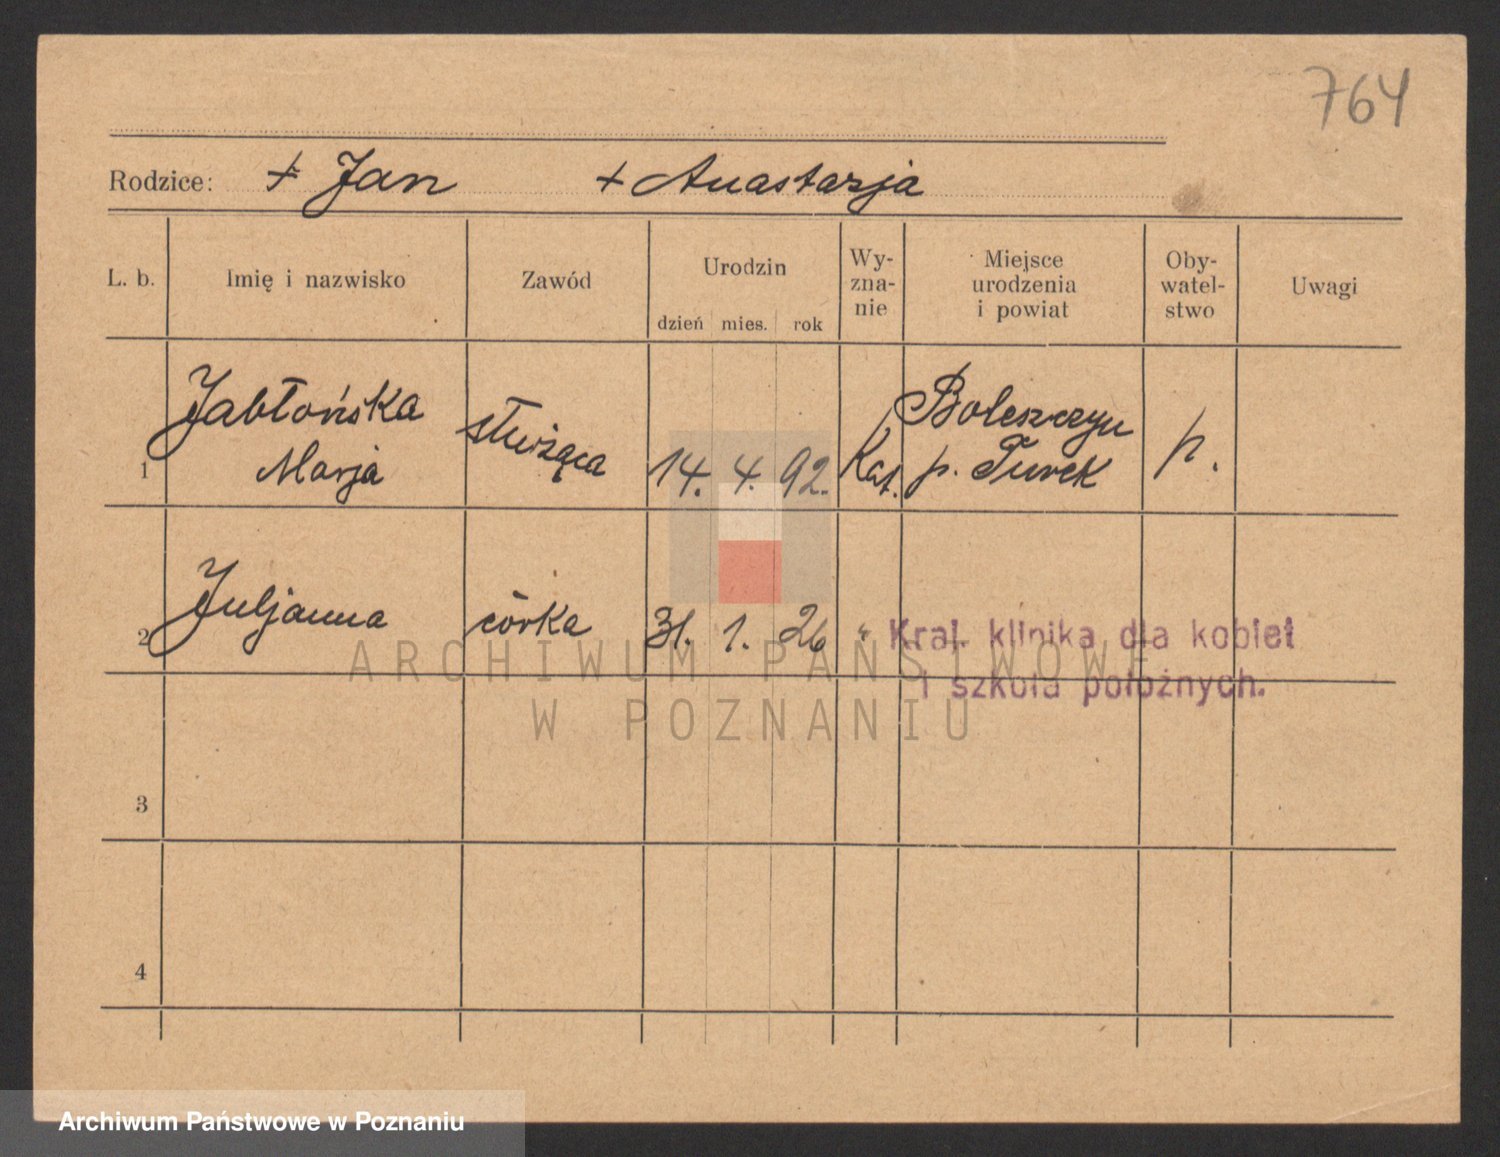 764
Rodzice: + Jan + Anastazja
L. b. Imię i nazwisko Zawód Urodzin dzień mies. rok Wy-zna-nie Miejsce urodzenia i powiat Oby-watel-stwo Uwagi
1 Jabłońska Marja służąca 14. 4. 92. Kat. Boleszczyn p. Turek p.
2 Juljanna córka 31. 1. 26 " Kraj. klinika dla kobiet
i szkoła położnych.
ARCHIWUM PAŃSTWOWE
W POZNANIU
3
4
Archiwum Państwowe w Poznaniu